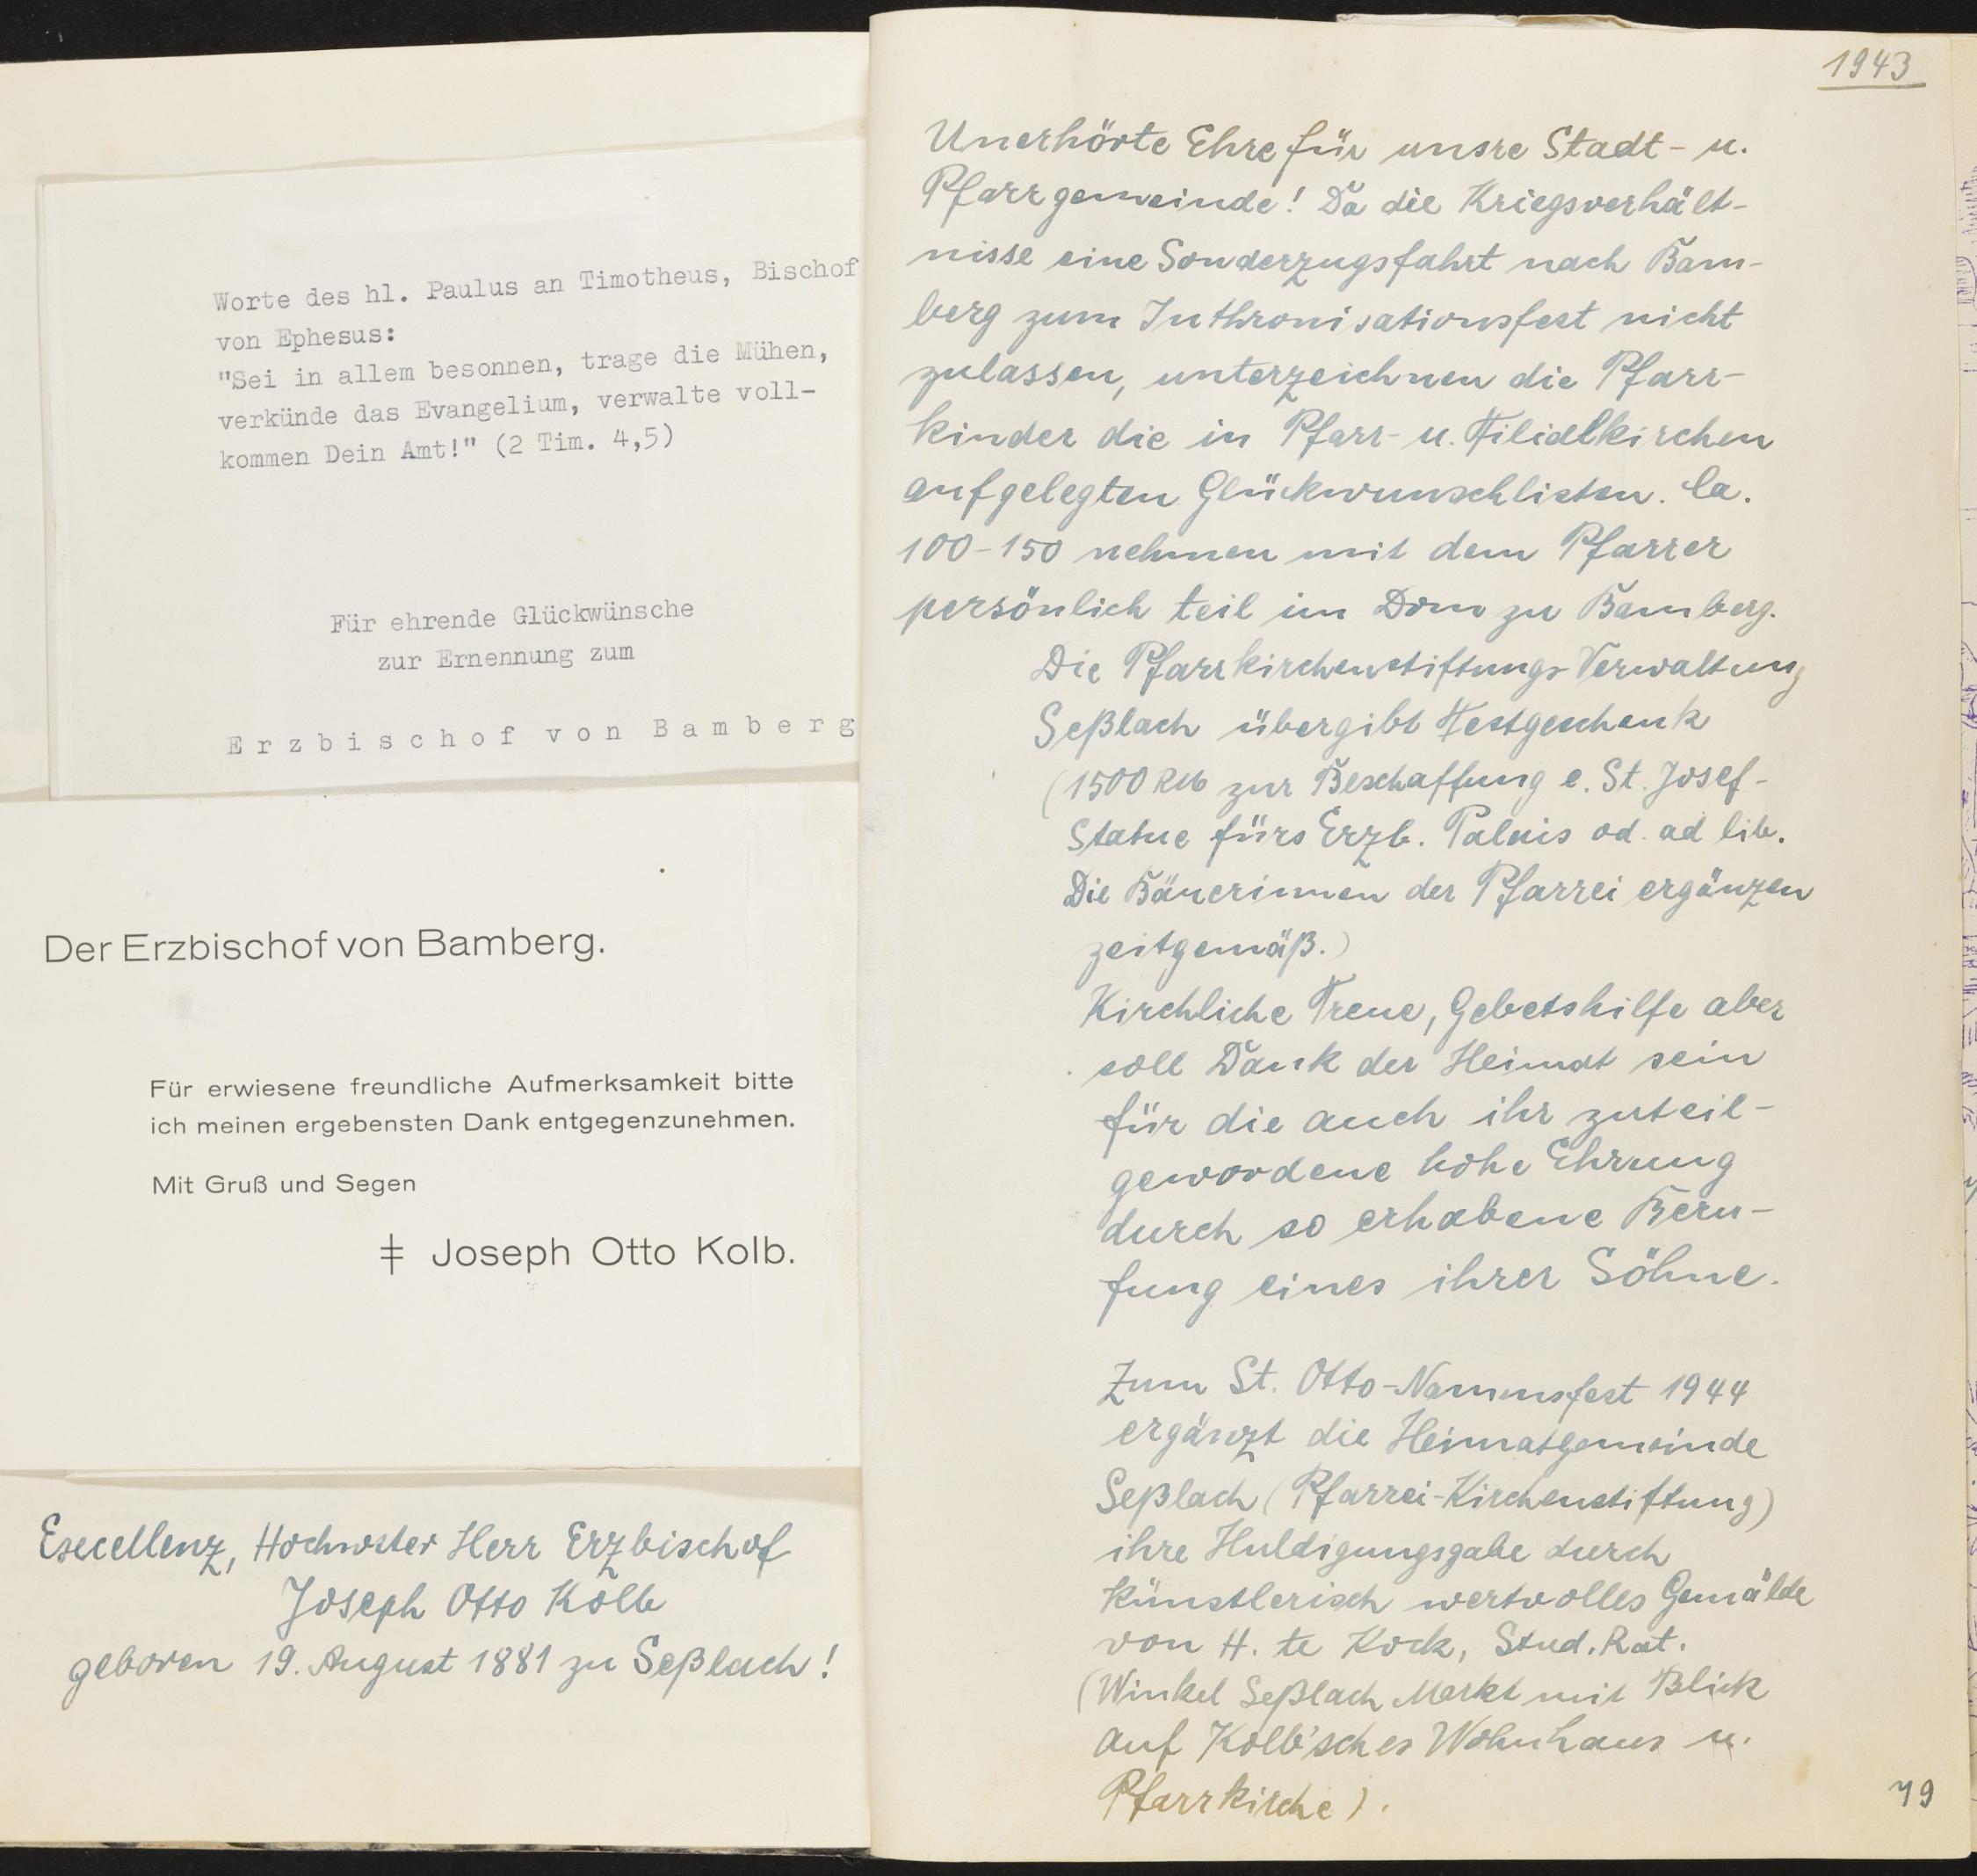 Worte des hl. Paulus an Timotheus, Bischof
von Ephesus:
"Sei in allem besonnen, trage die Mühen,
verkünde das Evangelium, verwalte voll-
kommen Dein Amt!" (2 Tim. 4,5)
Für ehrende Glückwünsche
zur Ernennung zum
Erzbischof von Bamberg
Der Erzbischof von Bamberg.
Für erwiesene freundliche Aufmerksamkeit bitte
ich meinen ergebensten Dank entgegenzunehmen.
Mit Gruß und Segen
‡ Joseph Otto Kolb.
Excellenz, Hochwster Herr Erzbischof
Joseph Otto Kolb
geboren 19. August 1881 zu Seßlach!
1943
Unerhörte Ehre für unsre Stadt- u.
Pfarrgemeinde! Da die Kriegsverhält-
nisse eine Sonderzugsfahrt nach Bam-
berg zum Inthronisationsfest nicht
zulassen, unterzeichnen die Pfarr-
kinder die in Pfarr- u. Filialkirchen
aufgelegten Glückwunschlisten. Ca.
100-150 nehmen mit dem Pfarrer
persönlich teil im Dom zu Bamberg.
Die Pfarrkirchenstiftungs-Verwaltung
Seßlach übergibt Festgeschenk
(1500 RM zur Beschaffung e. St. Josef-
Statue fürs Erzb. Palais od. ad lib.
Die Bäuerinnen der Pfarrei ergänzen
zeitgemäß.)
Kirchliche Treue, Gebetshilfe aber
soll Dank der Heimat sein
für die auch ihr zuteil-
gewordene hohe Ehrung
durch so erhabene Beru-
fung eines ihrer Söhne.
Zum St. Otto-Namensfest 1944
ergänzt die Heimatgemeinde
Seßlach (Pfarrei-Kirchenstiftung)
ihre Huldigungsgabe durch
künstlerisch wertvolles Gemälde
von H. te Kock, Stud. Rat.
(Winkel Seßlach Markt mit Blick
auf Kolb'sches Wohnhaus u.
Pfarrkirche).
79